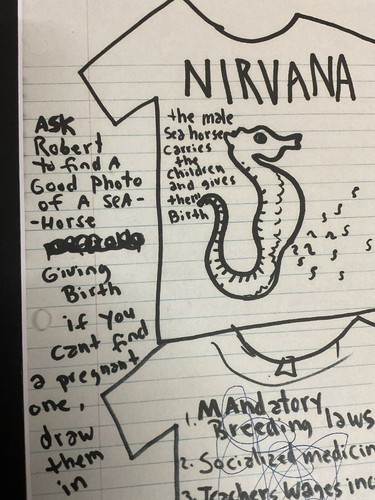 NIRVANA
the male
Sea horse
carries
the
children
and gives
them
Birth
ASK
Robert
to find A
Good Photo
of A SEA-
-Horse
Giving
Birth
if you
cant find
a pregnant
one,
draw
them
in
1. MAndatory
Breeding laws
2. Socialized medicin
3. Teachers Wages inc